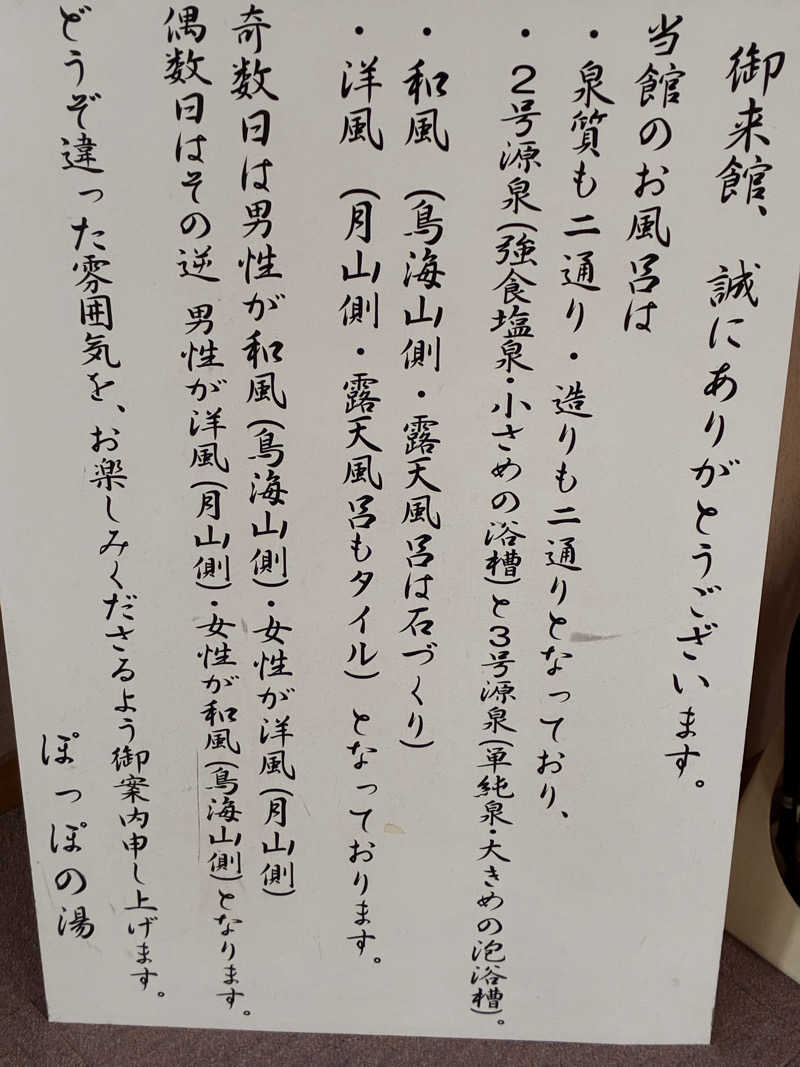 御来館、誠にありがとうございます。
当館のお風呂は
・泉質も二通り・造りも二通りとなっており、
・2号源泉(強食塩泉・小さめの浴槽)と3号源泉(単純泉・大きめの泡浴槽)。
・和風 (鳥海山側・露天風呂は石づくり)
・洋風 (月山側・露天風呂もタイル) となっております。
奇数日は男性が和風(鳥海山側)・女性が洋風(月山側)
偶数日はその逆 男性が洋風(月山側)・女性が和風(鳥海山側)となります。
どうぞ違った雰囲気を、お楽しみくださるよう御案内申し上げます。
ぽっぽの湯